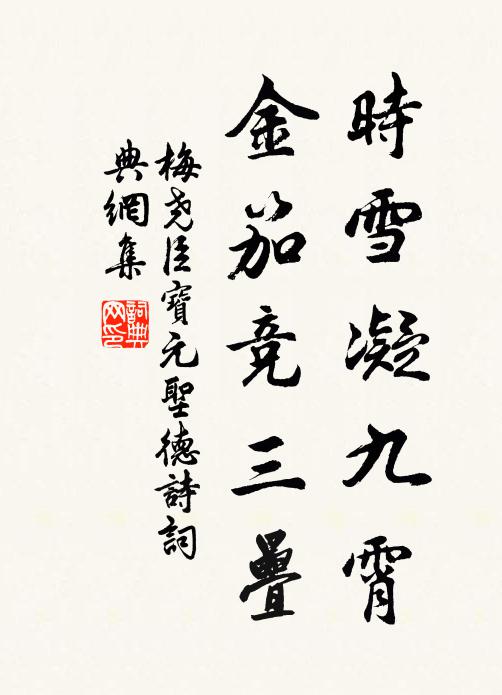 時雪凝九霄
金笳竞三疊
梅尧臣寶元聖德詩詞
典網集
詞典
网印